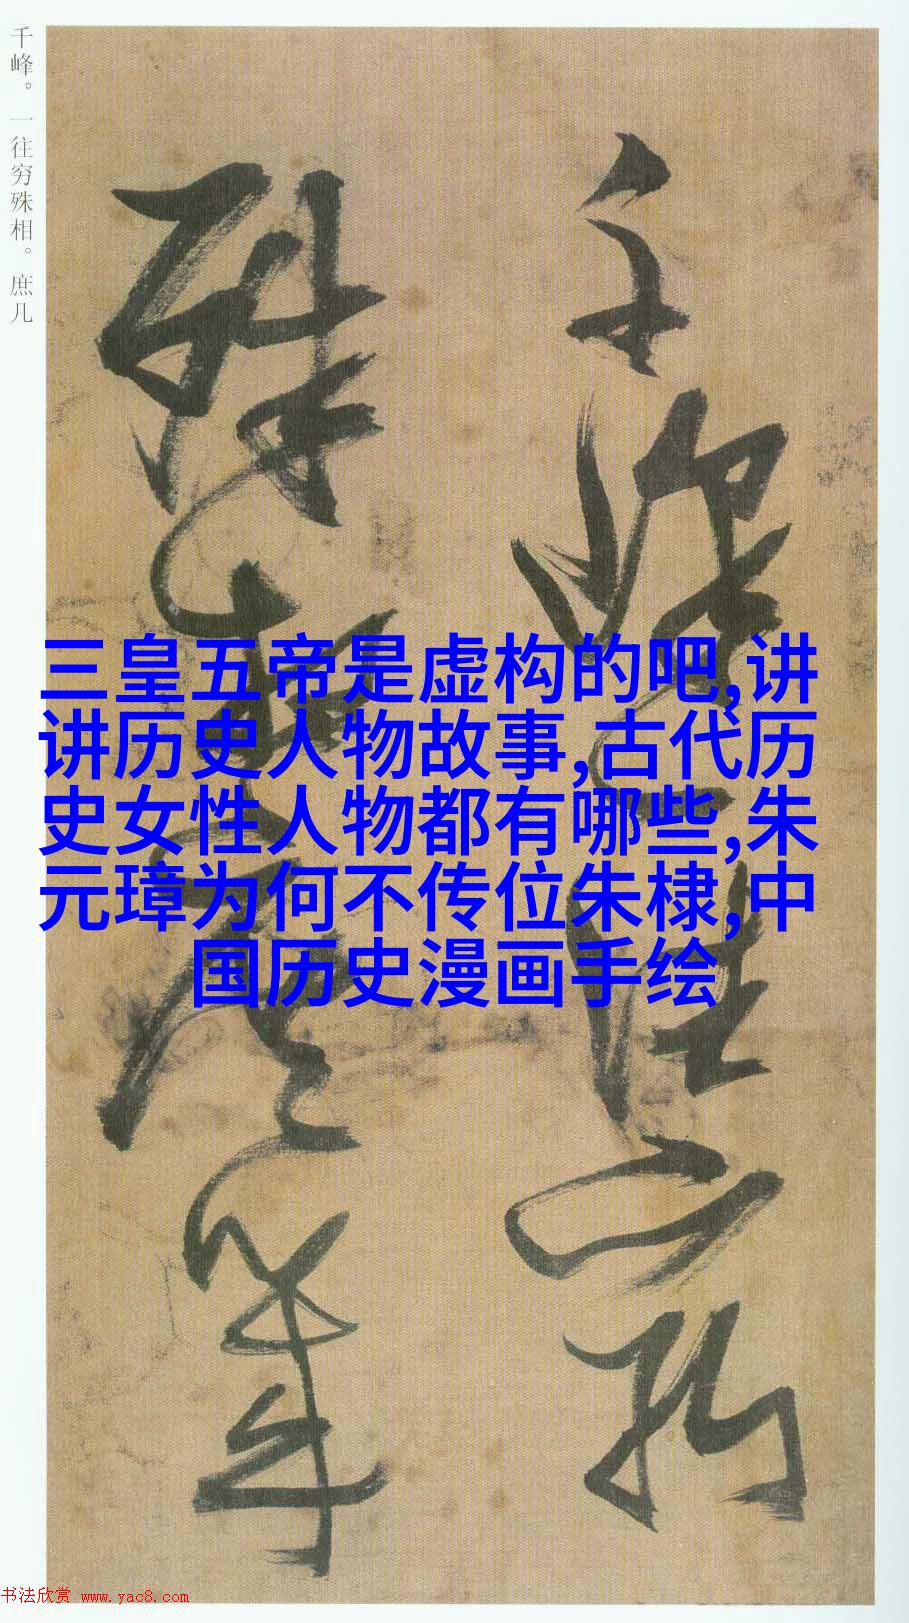 千峰。一往穷殊相。庶几
千峰一往穷
殊相庶几
三皇五帝是虚构的吧,讲
讲历史人物故事,古代历
史女性人物都有哪些,朱
元璋为何不传位朱棣,中
国历史漫画手绘
书法欣赏 www.yac8.com